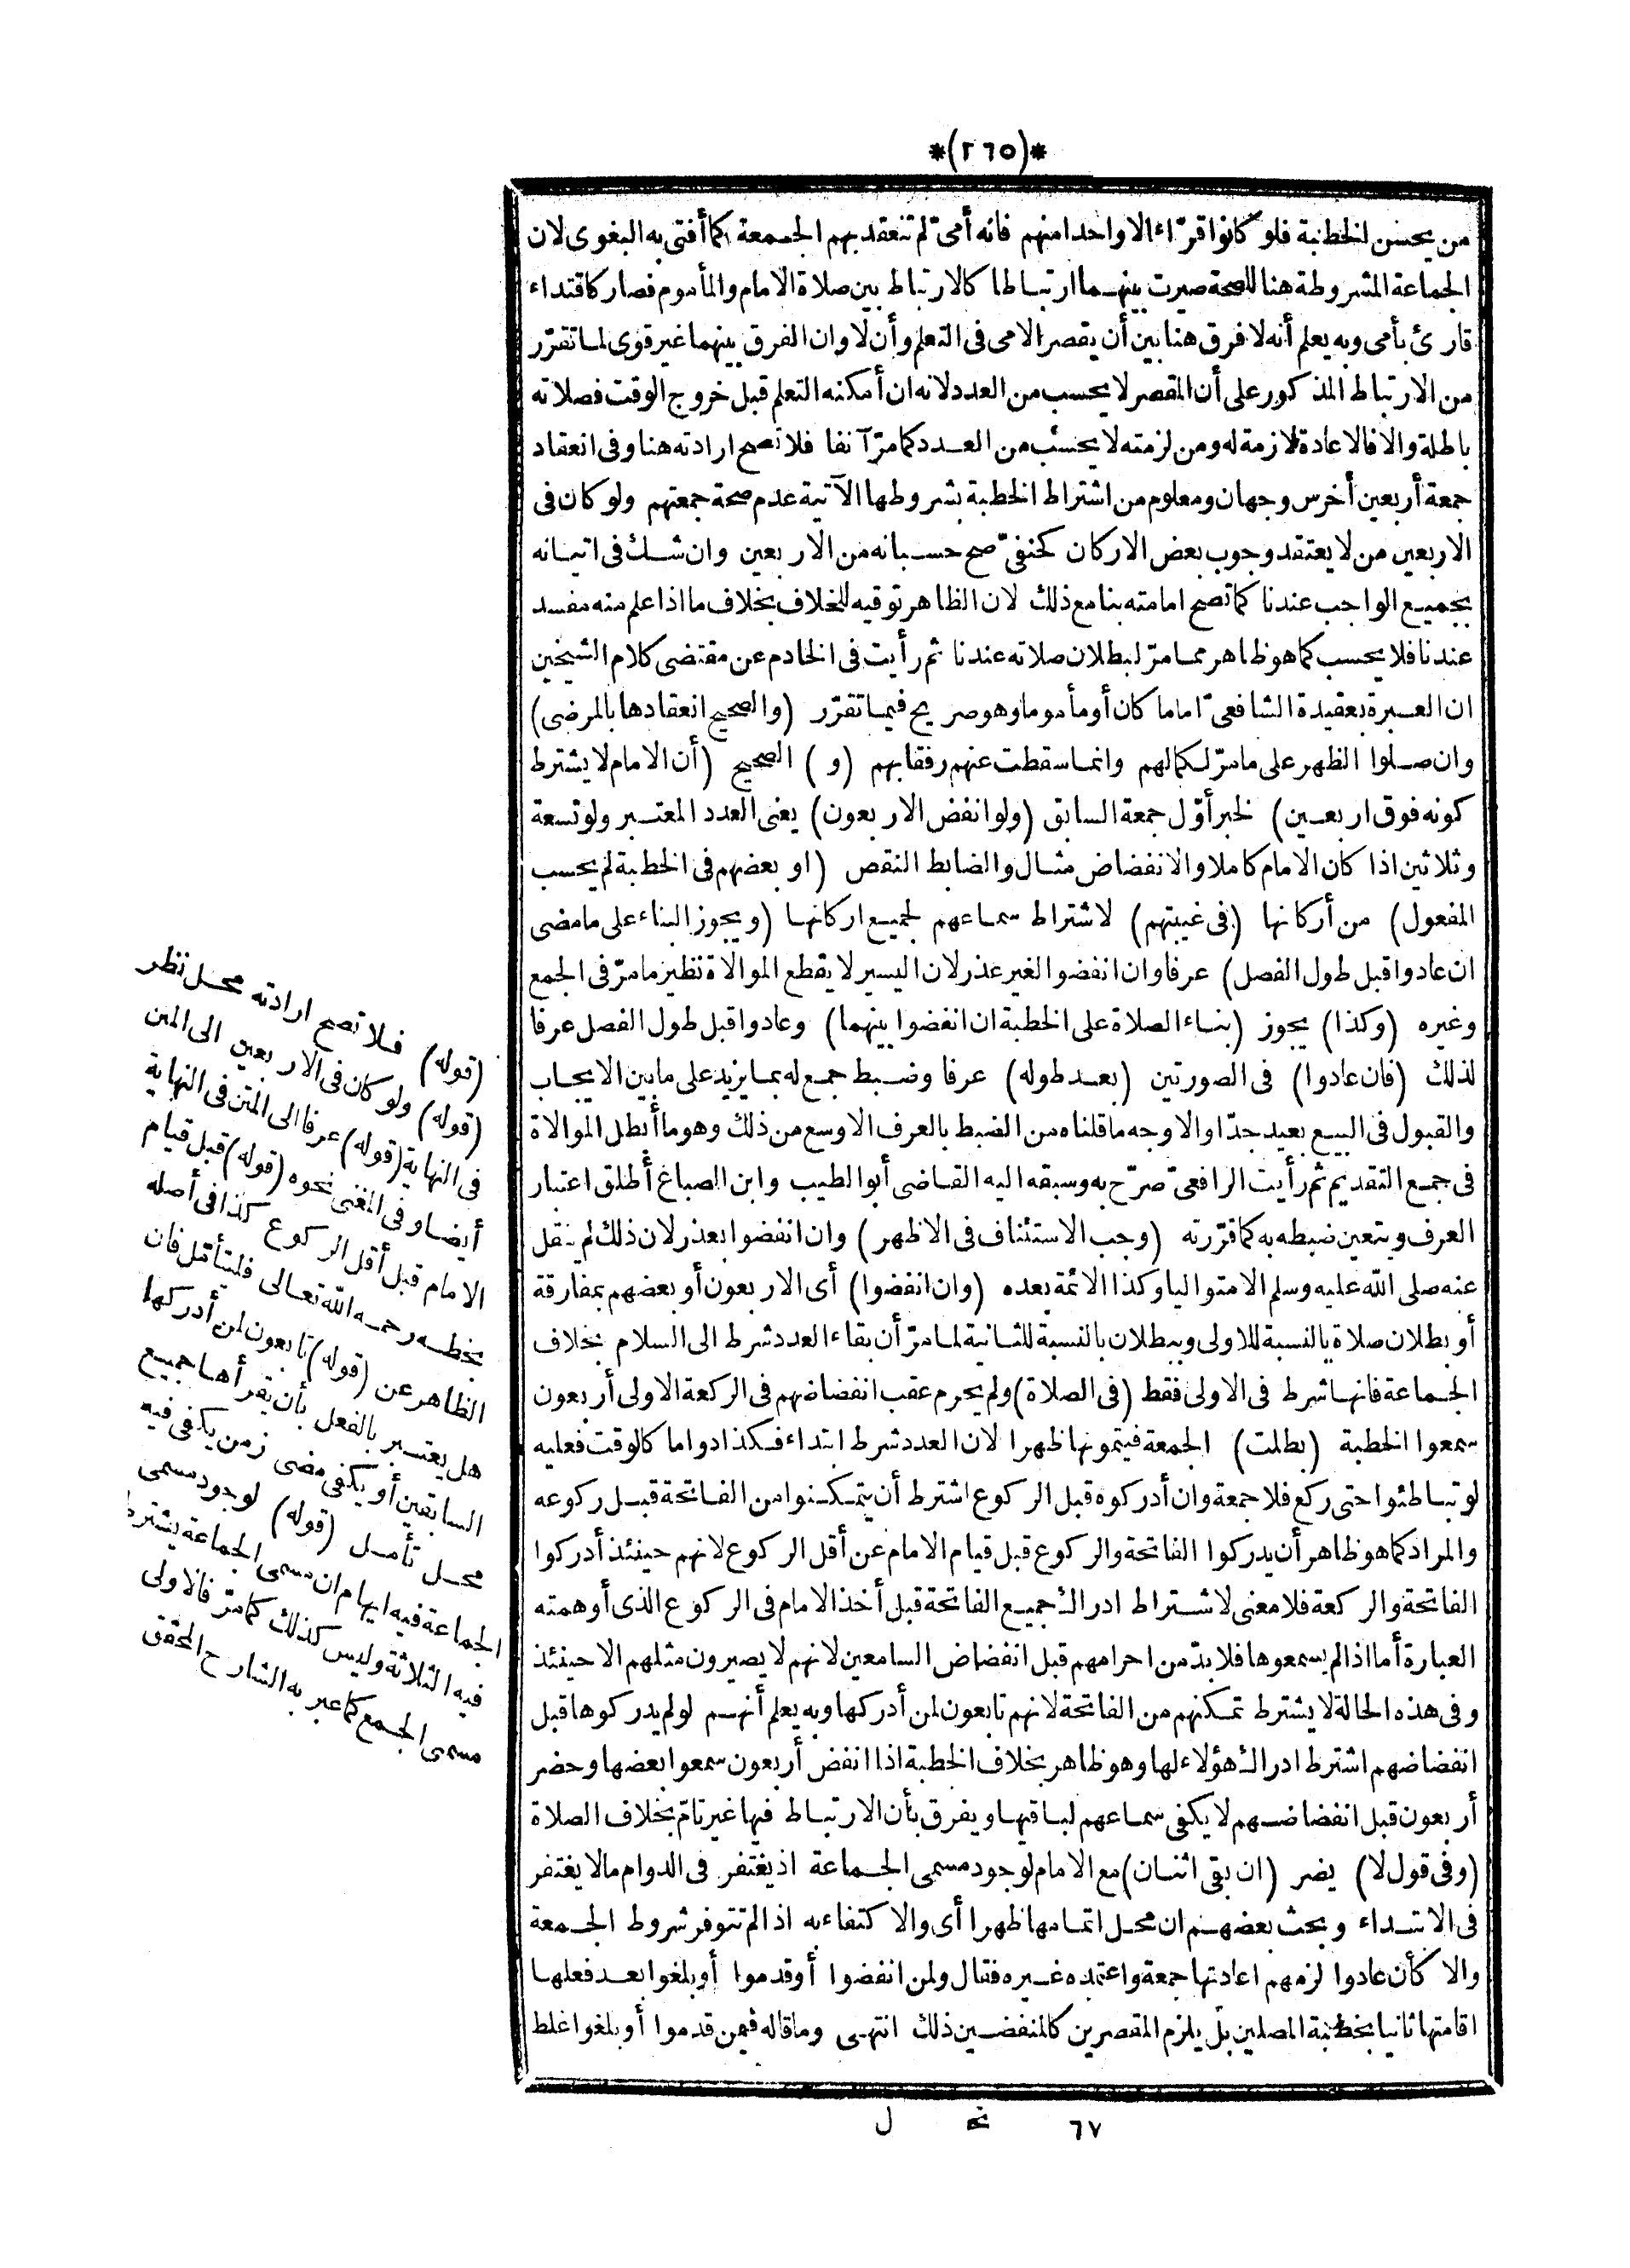 *(٢٦٥)*
من يحسن الخطبة فلو كانوا قرّاء الا واحدا منهم فانه أمىّ لم تنعقد بهم الجمعة كما أفتى به البغوى لان
الجماعة المشروطة هنا للصحة صيرت بينهما ارتباطا كالارتباط بين صلاة الامام والمأموم فصار كاقتداء
قارئ بأمى وبه يعلم أنه لا فرق هنا بين أن يقصر الامى فى التعلم وأن لا وان الفرق بينهما غير قوى لما تقرّر
من الارتباط المذكور على أن المقصر لا يحسب من العدد لانه ان أمكنه التعلم قبل خروج الوقت فصلاته
باطلة والا فالاعادة لازمة له ومن لزمته لا يحسب من العدد كما مرّ آنفا فلا تصح ارادته هنا وفى انعقاد
جمعة أربعين أخرس وجهان ومعلوم من اشتراط الخطبة بشروطها الآتية عدم صحة جمعتهم ولو كان فى
الاربعين من لا يعتقد وجوب بعض الاركان كحنفىّ صح حسبانه من الاربعين وان شك فى اتيانه
بجميع الواجب عندنا كما تصح امامته بنا مع ذلك لان الظاهر توقيه للخلاف بخلاف ما اذا علم منه مفسد
عندنا فلا يحسب كما هو ظاهر مما مرّ لبطلان صلاته عندنا ثم رأيت فى الخادم عن مقتضى كلام الشيخين
ان العبرة بعقيدة الشافعىّ اماما كان أو مأموما وهو صريح فيما تقرّر (والصحيح انعقادها بالمرضى)
وان صلوا الظهر على ما مرّ لكمالهم وانما سقطت عنهم رفقا بهم (و) الصحيح (أن الامام لا يشترط
كونه فوق اربعين) لخبر أوّل جمعة السابق (ولو انفض الاربعون) يعنى العدد المعتبر ولو تسعة
وثلاثين اذا كان الامام كاملا والانفضاض مثال والضابط النقص (او بعضهم فى الخطبة لم يحسب
المفعول) من أركانها (فى غيبتهم) لاشتراط سماعهم لجميع اركانها (ويجوز البناء على ما مضى
ان عادوا قبل طول الفصل) عرفا وان انفضوا لغير عذر لان اليسير لا يقطع الموالاة نظير ما مرّ فى الجمع
وغيره (وكذا) يجوز (بناء الصلاة على الخطبة ان انفضوا بينهما) وعادوا قبل طول الفصل عرفا
لذلك (فان عادوا) فى الصورتين (بعد طوله) عرفا وضبط جمع له بما يزيد على ما بين الايجاب
والقبول فى البيع بعيد جدّا والاوجه ما قلناه من الضبط بالعرف الاوسع من ذلك وهو ما أبطل الموالاة
فى جمع التقديم ثم رأيت الرافعىّ صرّح به وسبقه اليه القاضى أبو الطيب وابن الصباغ أطلق اعتبار
العرف ويتعين ضبطه به كما قرّرته (وجب الاستئناف فى الاظهر) وان انفضوا بعذر لان ذلك لم ينقل
عنه صلى الله عليه وسلم الا متواليا وكذا الائمة بعده (وان انفضوا) أى الاربعون أو بعضهم بمفارقة
أو بطلان صلاة بالنسبة للاولى وببطلان بالنسبة للثانية لما مرّ أن بقاء العدد شرط الى السلام بخلاف
الجماعة فانها شرط فى الاولى فقط (فى الصلاة) ولم يحرم عقب انفضاضهم فى الركعة الاولى أربعون
سمعوا الخطبة (بطلت) الجمعة فيتمونها ظهرا لان العدد شرط ابتداء فكذا دواما كالوقت فعليه
لو تباطئوا حتى ركع فلا جمعة وان أدركوه قبل الركوع اشترط أن يتمكنوا من الفاتحة قبل ركوعه
والمراد كما هو ظاهر أن يدركوا الفاتحة والركوع قبل قيام الامام عن أقل الركوع لانهم حينئذ أدركوا
الفاتحة والركعة فلا معنى لاشتراط ادراك جميع الفاتحة قبل أخذ الامام فى الركوع الذى أوهمته
العبارة أما اذا لم يسمعوها فلا بدّ من احرامهم قبل انفضاض السامعين لانهم لا يصيرون مثلهم الا حينئذ
وفى هذه الحالة لا يشترط تمكنهم من الفاتحة لانهم تابعون لمن أدركها وبه يعلم أنهم لو لم يدركوها قبل
انفضاضهم اشترط ادراك هؤلاء لها وهو ظاهر بخلاف الخطبة اذا انفض أربعون سمعوا بعضها وحضر
أربعون قبل انفضاضهم لا يكفى سماعهم لباقيها ويفرق بأن الارتباط فيها غير تامّ بخلاف الصلاة
(وفى قول لا) يضر (ان بقى اثنان) مع الامام لوجود مسمى الجماعة اذ يغتفر فى الدوام ما لا يغتفر
فى الابتداء وبحث بعضهم ان محل اتمامها ظهرا أى والاكتفاء به اذا لم تتوفر شروط الجمعة
والا كأن عادوا لزمهم اعادتها جمعة واعتمده غيره فقال ولمن انفضوا أو قدموا أو بلغوا بعد فعلها
اقامتها ثانيا بخطبة المصلين بل يلزم المقصرين كالمنفضين ذلك انتهى وما قاله فيمن قدموا أو بلغوا غلط
(قوله) فلا تصح ارادته محل نظر
(قوله) ولو كان فى الاربعين الى المتن
فى النهاية (قوله) عرفا الى المتن فى النهاية
أيضا وفى المغنى نحوه (قوله) قبل قيام
الامام قبل أقل الركوع كذا فى أصله
بخطه رحمه الله تعالى فليتأمل فان
الظاهر عن (قوله) تابعون لمن أدركها
هل يعتبر بالفعل بأن يقرأها جميع
السابقين أو يكفى مضى زمن يكفى فيه
محل تأمل (قوله) لوجود مسمى
الجماعة فيه ايهام ان مسمى الجماعة يشترط
فيه الثلاثة وليس كذلك كما مرّ فالاولى
مسمى الجمع كما عبر به الشارح المحقق
٦٧ نح ل